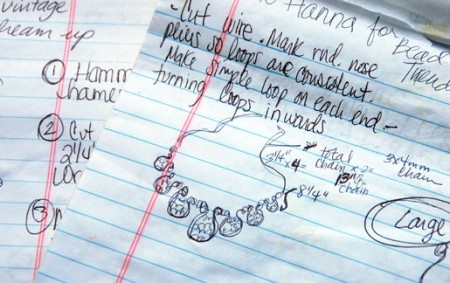 vintage
dream up
① Hamm
② Cut
2 1/4"
③
Hanna for
Bead
Trend
- Cut wire. Mark rnd. nose
pliers so loops are consistent.
Make simple loop on each end -
turning loops inwards
3 1/4" x 4
total
chain
chain
8 1/4"
3x4mm
chain
Large